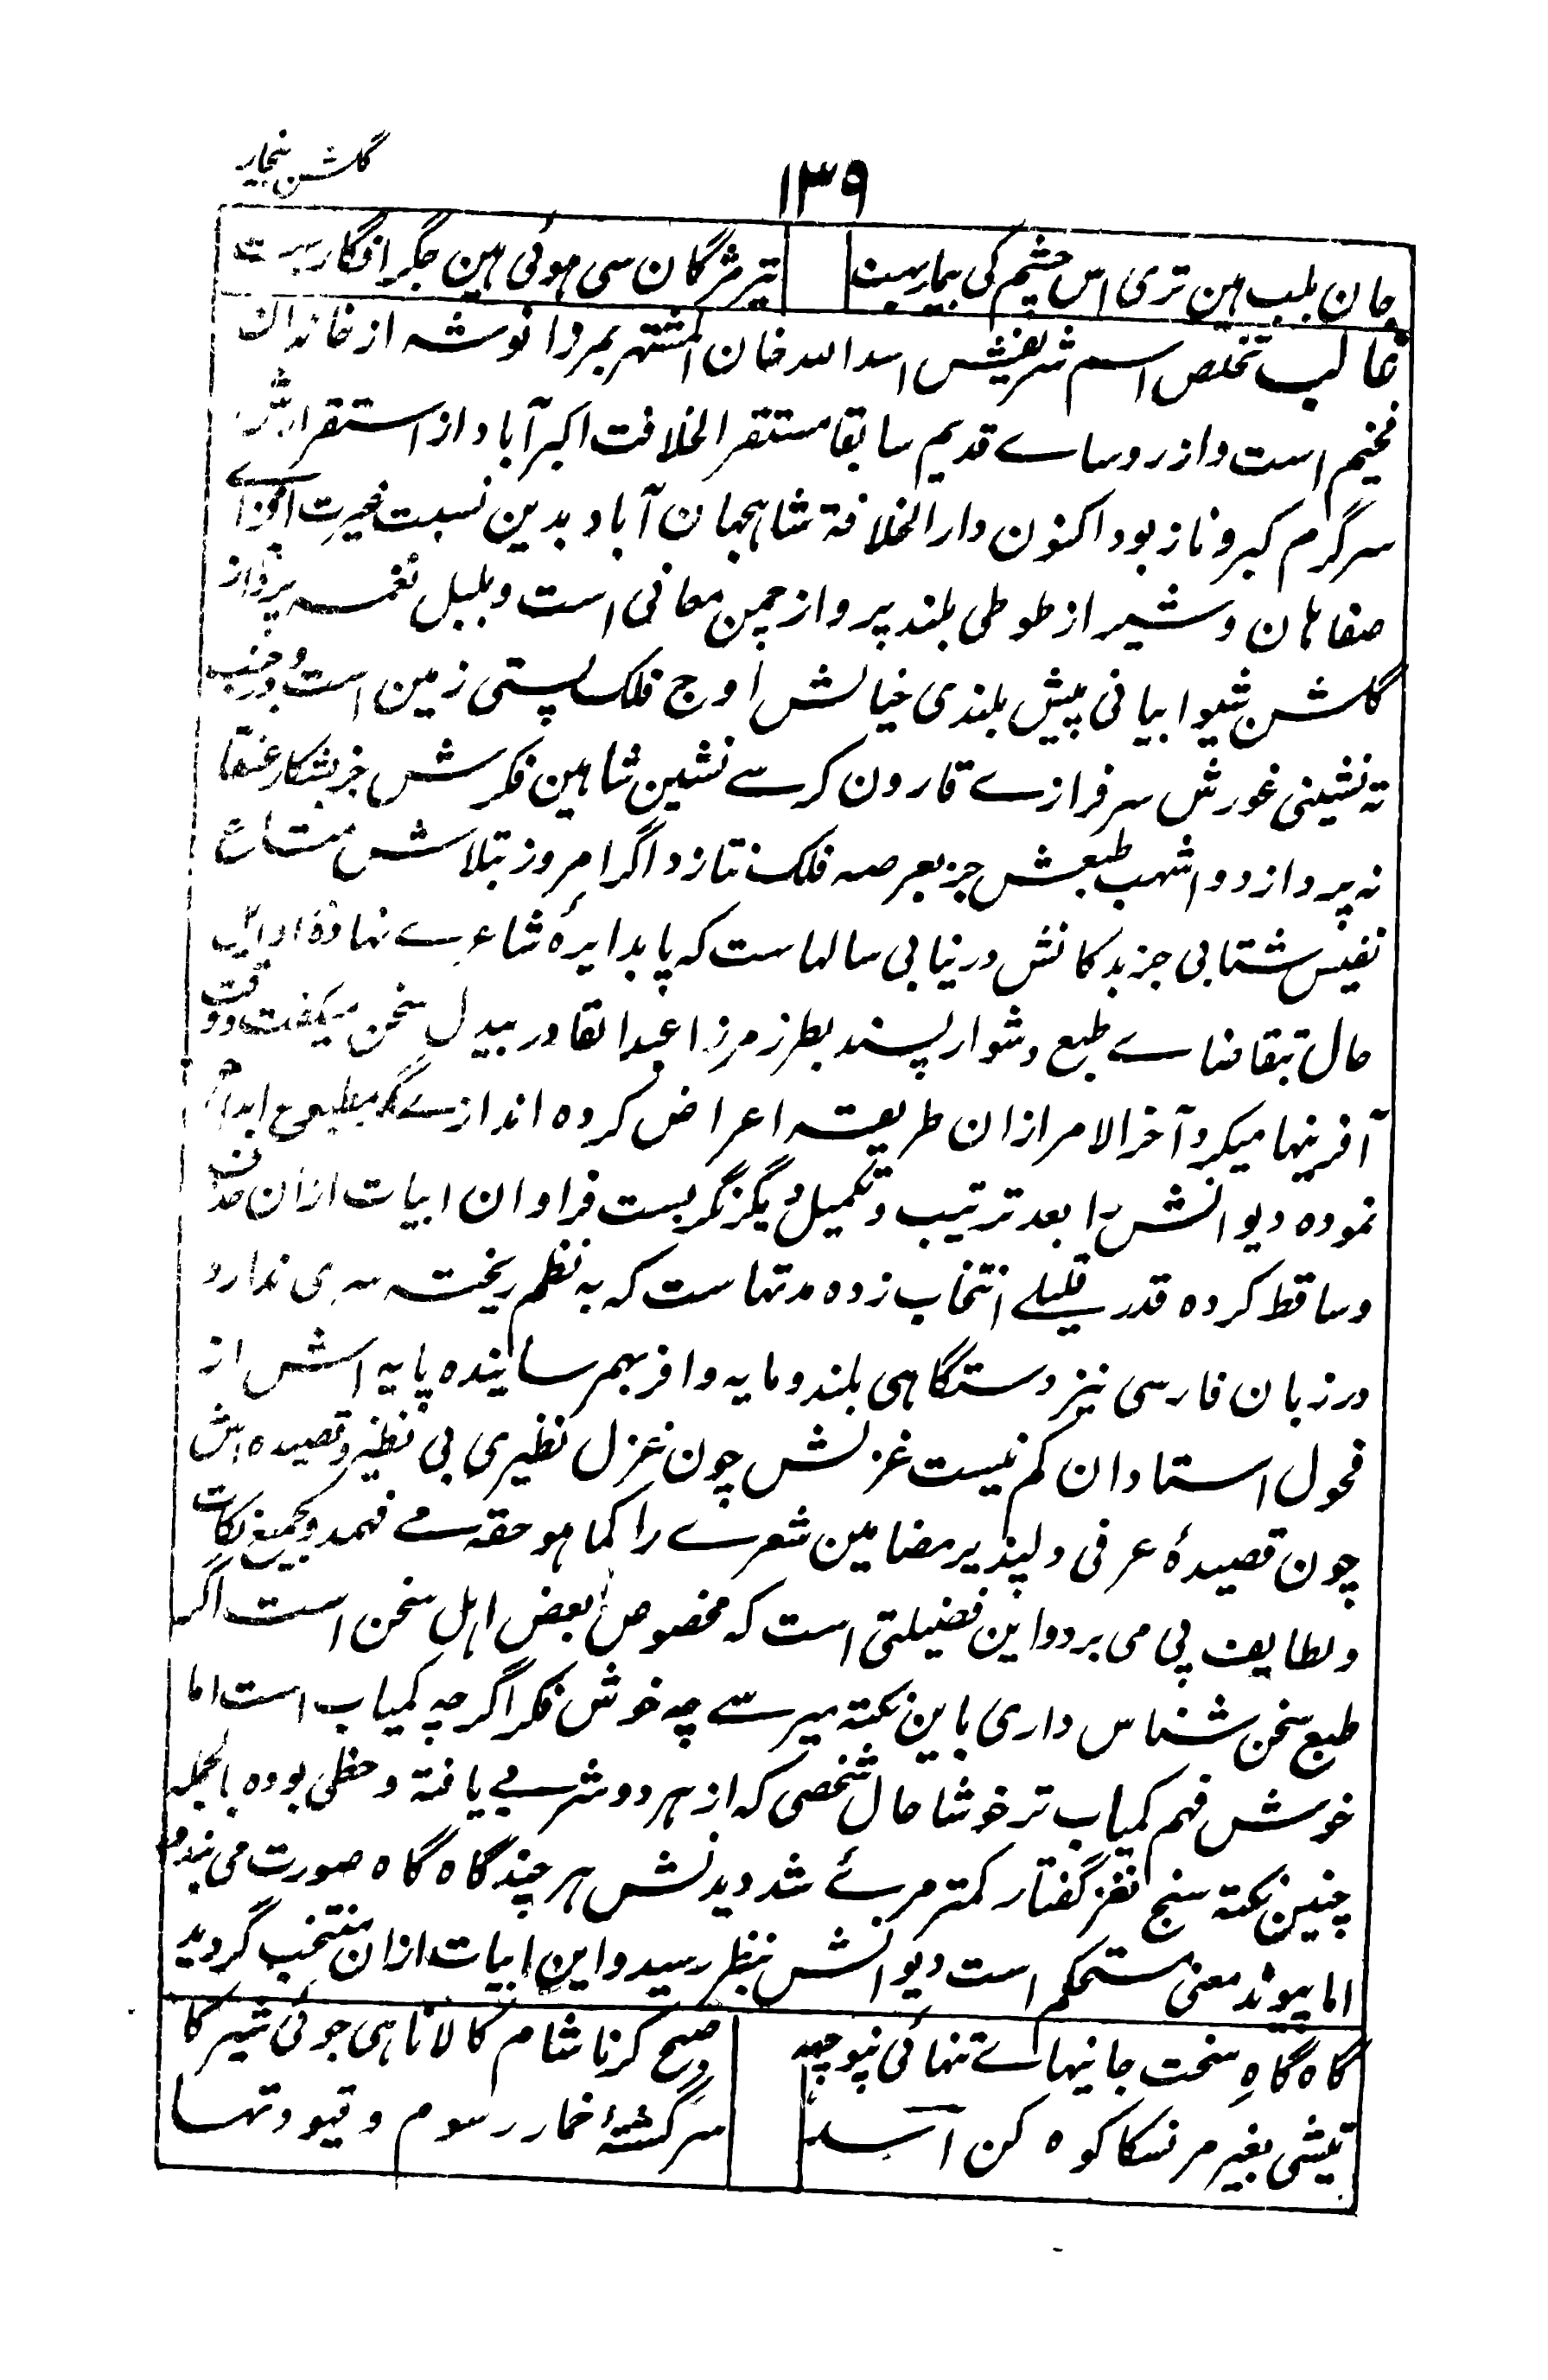 گلشن بیخار
۱۳۹
جان بلب ہین تری اس چشم کی بیمار بہت
تیر مژگان سی ہوئی ہین جگر افگار بہت
غالب تخلص اسم شریفش اسد اللہ خان المشتہر بمرزا نوشہ از خاندان
فخیم است و از روساے قدیم سابقا مستقر الخلافت اکبر آباد از استقرارش
سرگرم کبر و ناز بود اکنون دار الخلافۃ شاہجہان آباد بدین نسبت غیرت افزاے
صفاہان و شیراز طوطی بلند پرواز چمن معانی است و بلبل نغمہ پرداز
گلشن شیوا بیانی پیش بلندی خیالش اوج فلک پستی زمین است و در جنب
تہ نشینی غورش سرفرازے قارون کرسے نشین شاہین فکرش جز بشکار عنقا
نہ پردازد و اشہب طبعش جز بعرصہ فلک نتازد اگر امروز بتلاش متاع
نفیس شتابی جز بدکانش در نیابی سالہاست کہ پا بدایرۂ شاعرے نہادہ اوایل
حال بتقاضاے طبع دشوار پسند بطرز مرزا عبد القادر بیدل سخن میگفت و دقت
آفرینہا میکرد آخر الامر از ان طریقہ اعراض کردہ اندازے دگر مطبوع ابداع
نمودہ دیوانش را بعد ترتیب و تکمیل دیگر نگریست فراوان ابیات از ان حذف
و ساقط کردہ قدرے قلیلے انتخاب زدہ مدتہاست کہ بہ نظم ریختہ سری ندارد
در زبان فارسی نیز دستگاہی بلند و مایہ وافر بہم رسانیدہ پایہ اش از
فحول استادان کم نیست غزلش چون غزل نظیری بی نظیر و قصیدہ اش
چون قصیدۂ عرفی دلپذیر مضامین شعرے را کما ہو حقہ مے فہمد و بجمیع نکات
و لطایف پی می برد و این فضیلتی است کہ مخصوص بعض اہل سخن است اگر
طبع سخن شناس داری باین نکتہ میرسے چہ خوش فکر اگرچہ کمیاب است اما
خوش فہم کمیاب تر خوشا حال شخصی کہ از ہر دو شربے یافتہ و حظی بودہ بالجملہ
چنین نکتہ سنج نغز گفتار کمتر مرئے شد دیدنش ہر چند گاہ گاہ صورت می بندد
اما پیوند معنی مستحکم است دیوانش بنظر رسید و این ابیات از ان منتخب گردید
کاہ کاہِ سخت جانیہاے تنہائی نپوچہہ
صبح کرنا شام کا لانا ہی جوئی شیر کا
تیشی بغیر مر نسکا کوہ کن اسد
سرگشتۂ خمار رسوم و قیود تہا